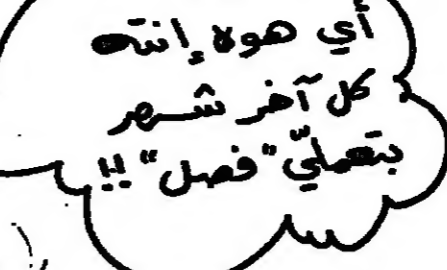 أي هوه إنته
كل آخر شهر
بتعمليّ "فصل" !!